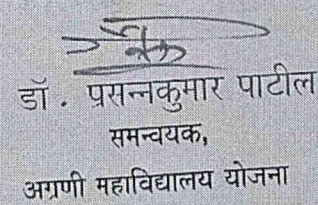 डॉ. प्रसन्नकुमार पाटील
समन्वयक,
अग्रणी महाविद्यालय योजना